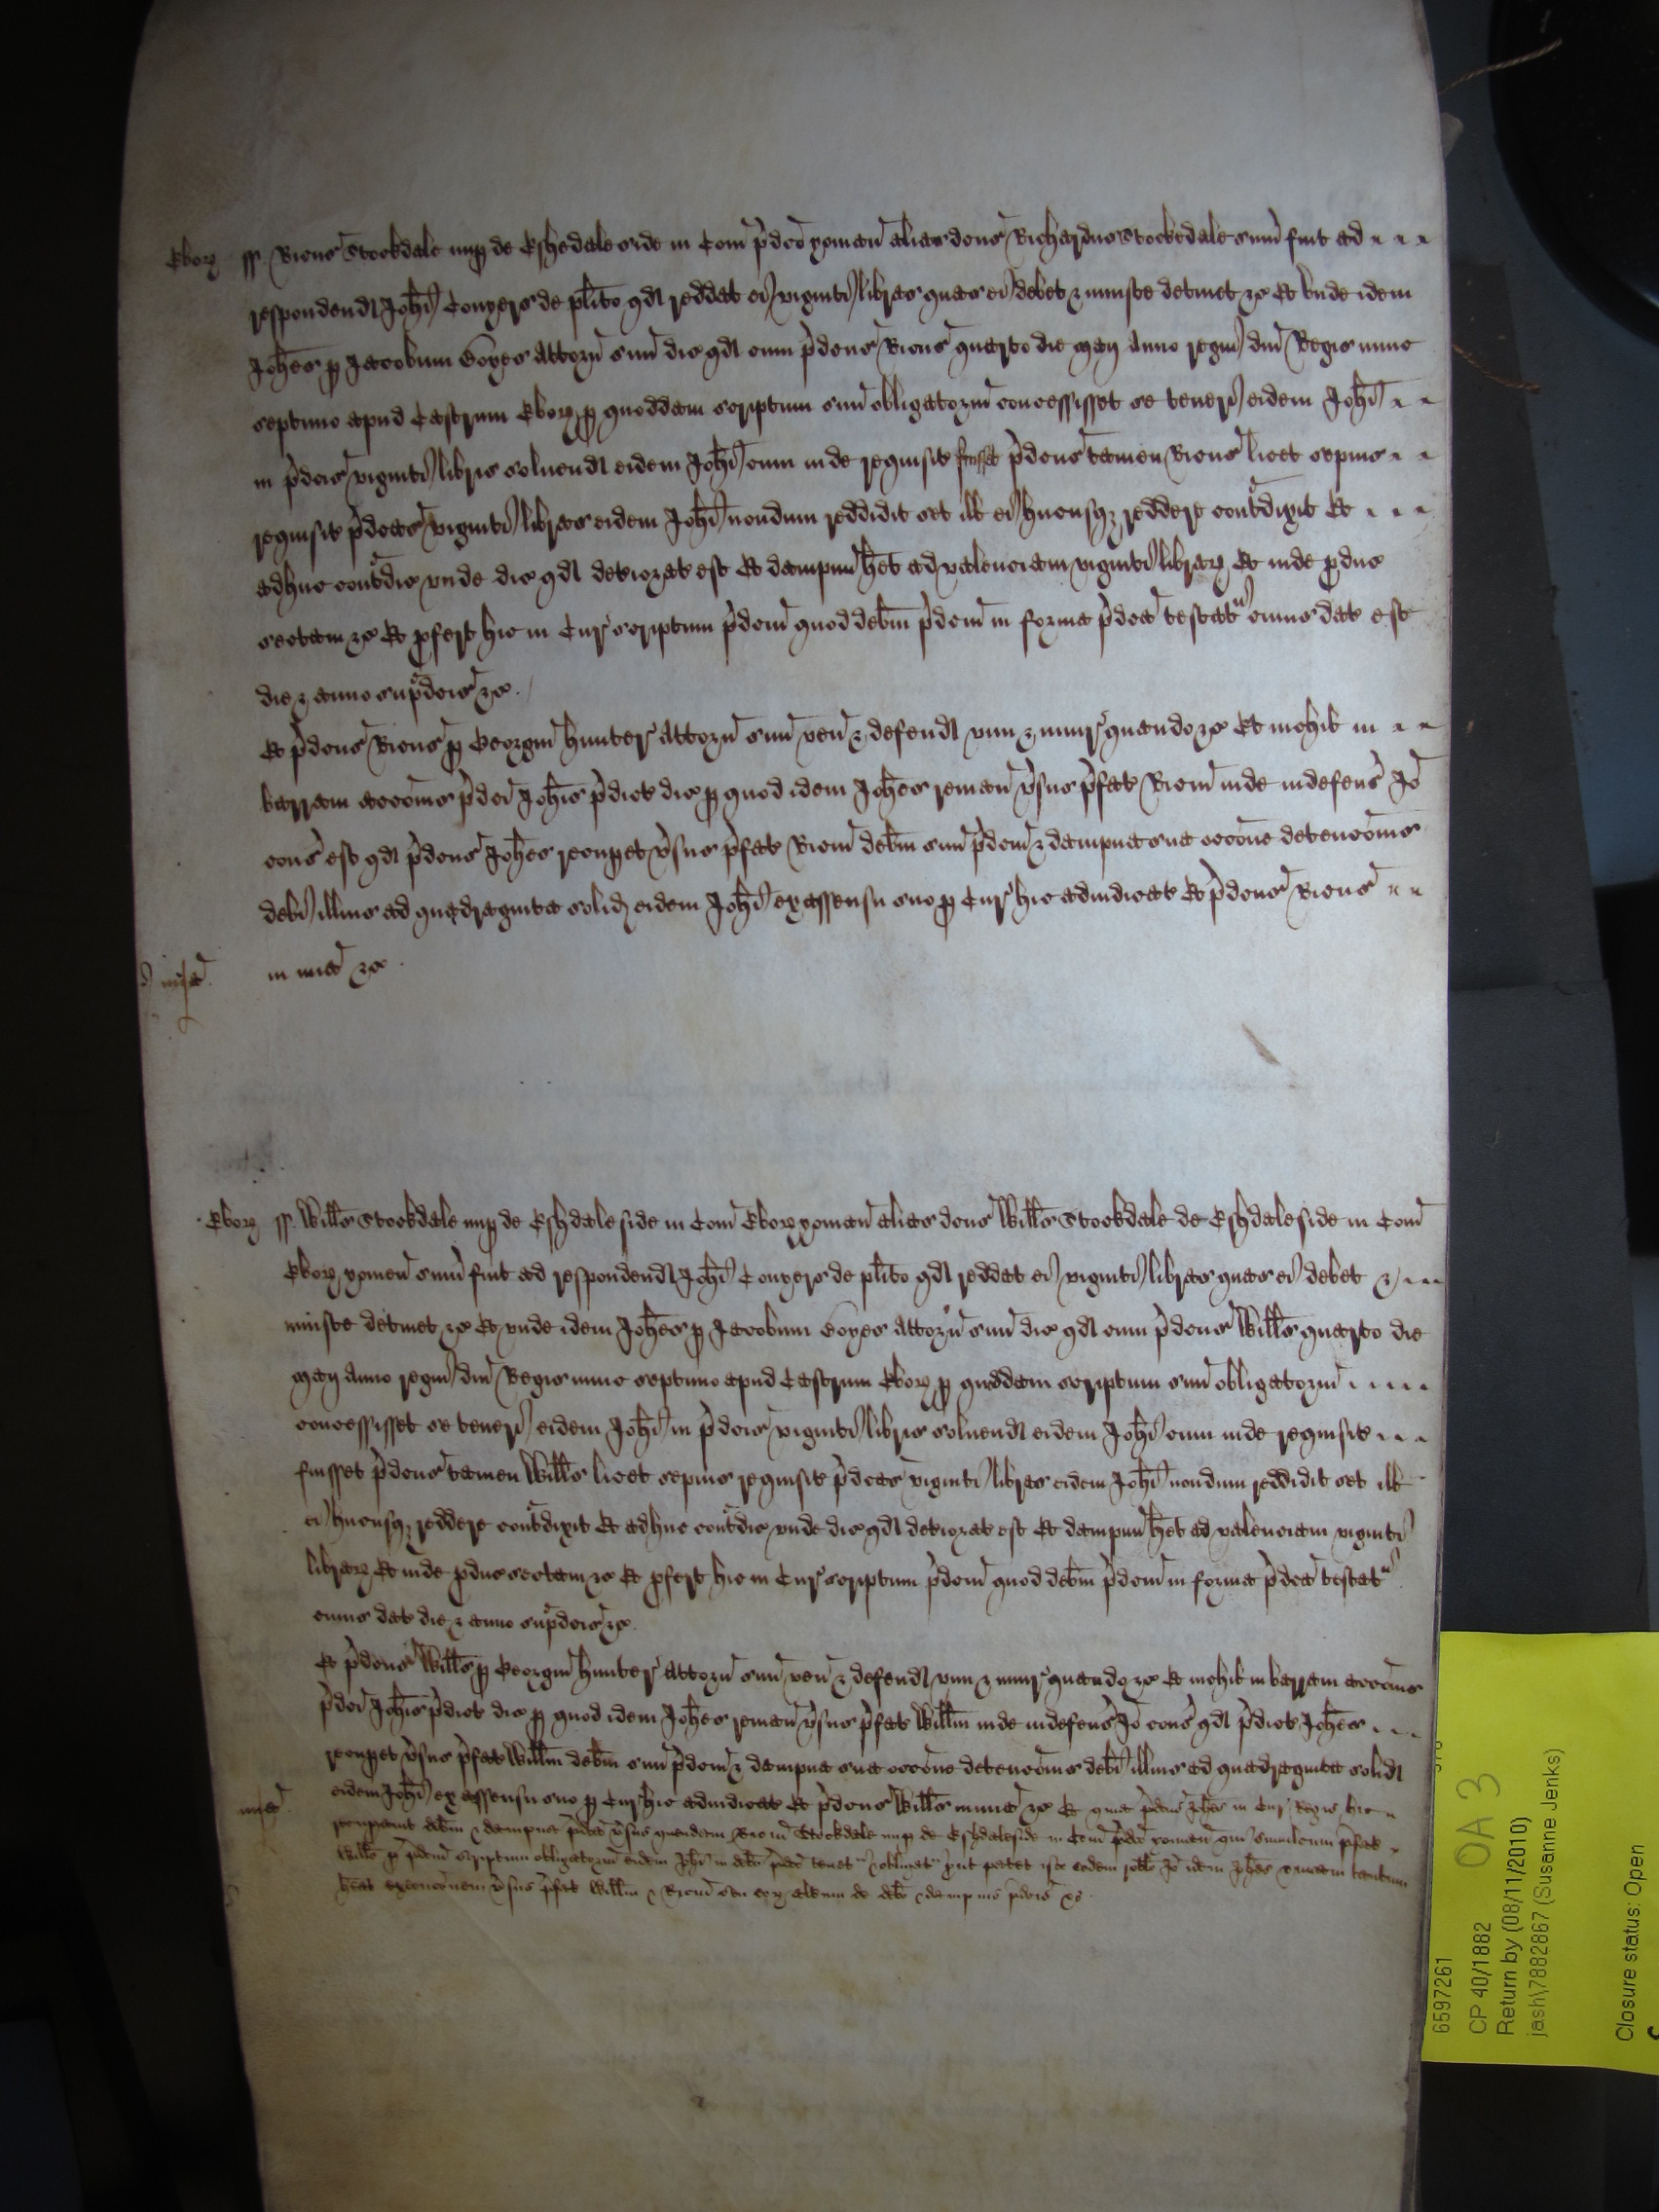 Ebor₎ ss Ricus Stookdale nup de Eshedale side in Com p̄dco yoman̄ alias dcus Richardus Stockedale sum̄ fuit ad
respondend Joh̄i Conyers de pl̄ito qd reddat ei viginti libras quas ei debet & iniuste detinet &c Et unde idem
Joh̄es p Jacobum Boyes Attorn̄ suū dic qd cum p̄dcus Ricus quarto die Maij Anno regni dn̄i Regis nunc
septimo apud Castrum Ebor₎ p quoddam scriptum suū obligatoriū concessisset se teneri eidem Joh̄i
in p̄dcis viginti libris soluend eidem Joh̄i cum inde requisit fuisset p̄dcus tamen Ricus licet sepius
requisit p̄dcas viginti libras eidem Joh̄i nondum reddidit set ill ei hucusq₃ reddere contᵃdixit Et
adhuc contᵃdic vnde dic qd deteriorat est Et dampnū h̄et ad valenciam viginti librar₎ Et inde p̱duc
sectam &c Et p̱fert hic in Cur scriptum p̄dcm̄ quod deb̄m p̄dcm̄ in forma p̄dca testatᵘ cuius dat est
die & anno supᵃdcis &c.
Et p̄dcus Ricus p Georgiū hunter Attorn̄ suū ven̄ & defend vim & iniurᵃ quando &c Et nichil in
barram acc̄onis p̄dci Joh̄is p̄dict dic p quod idem Joh̄es reman̄ v̄sus p̄fat Ricm̄ inde indefens̄ Jō
cons̄ est qd p̄dcus Joh̄es recupet v̄sus p̄fat Ricm̄ deb̄m suū p̄dcm̄ & dampna sua occ̄one detenc̄onis
debi illius ad quadraginta solid₎ eidem Joh̄i ex assensu suo p Cur hic adiudicat Et p̄dcus Ricus
m̄ia in mia &c.
Ebor₎ ss Willūs Stookdale nup de Eshdale side in Com Ebor₎ yoman̄ alias dcus Willūs Stookdale de Eshdaleside in Com
Ebor₎ yomen̄ sum̄ fuit ad respondend Joh̄i Conyers de pl̄ito qd reddat ei viginti libras quas ei debet &
iniuste detinet &c Et vnde idem Joh̄es p Jacobum Boyes Attorn̄ suū dic qd cum p̄dcus Willūs quarto die
Maij Anno regni dn̄i Regis nunc septimo apud Castrum Ebor₎ p quoddam scriptum suū obligatoriū
concessisset se teneri eidem Joh̄i in p̄dcis viginti libris soluend eidem Joh̄i cum inde requisit
fuisset p̄dcus tamen Willūs licet sepius requisit p̄dcas viginti libras eidem Joh̄i nondum reddidit set ill
ei hucusq₃ reddere contᵃdixit Et adhuc contᵃdic vnde dic qd deteriorat est Et dampnū h̄et ad valenciam viginti
librar₎ Et inde p̱duc sectam &c Et p̱fert hic in Cur scriptum p̄dcm̄ quod deb̄m p̄dcm̄ in forma p̄dca testatᵘ
cuius dat die & anno supᵃdcis &c.
Et p̄dcus Willūs p Georgiū hunter Attorn̄ suū ven̄ & defend vim & iniurᵃ quando &c Et nichil in barram acc̄onis
p̄dci Joh̄is p̄dict dic p quod idem Joh̄es reman̄ v̄sus p̄fat Will̄m inde indefens̄ Jō cons̄ qd p̄dict Joh̄es
recupet v̄sus p̄fat Will̄m deb̄m suū p̄dcm̄ & dampna sua occ̄one detenc̄onis debi illius ad quadraginta solid
m̄ia eidem Joh̄i ex assensu suo p Cur hic adiudicat Et p̄dcus Willūs in mia &c Et quia p̄dcus Joh̄es in Cur Regis hic
recupauit deb̄m & dampna p̄dca v̄sus quendam Ricm̄ Stookdale nup de Eshdaleside in Com̄ p̄dco yoman̄ qui simulcum p̄fat
Willō p p̄dcm̄ scriptum obligatoriū eidem Joh̄i in deb̄o p̄dco tenetᵘ & obligatᵘ put patet isto eodem rotlo Jō idem Joh̄es vnicam tantum
h̄eat execuc̄onem v̄sus p̄fat Will̄m & Ricm̄ seu eor₎ alterum de deb̄o & dampnis p̄dcis &c.
6597261
CP 40/1882
OA 3
Return by (08/11/2010)
jash\7882867 (Susanne Jenks)
Closure status: Open